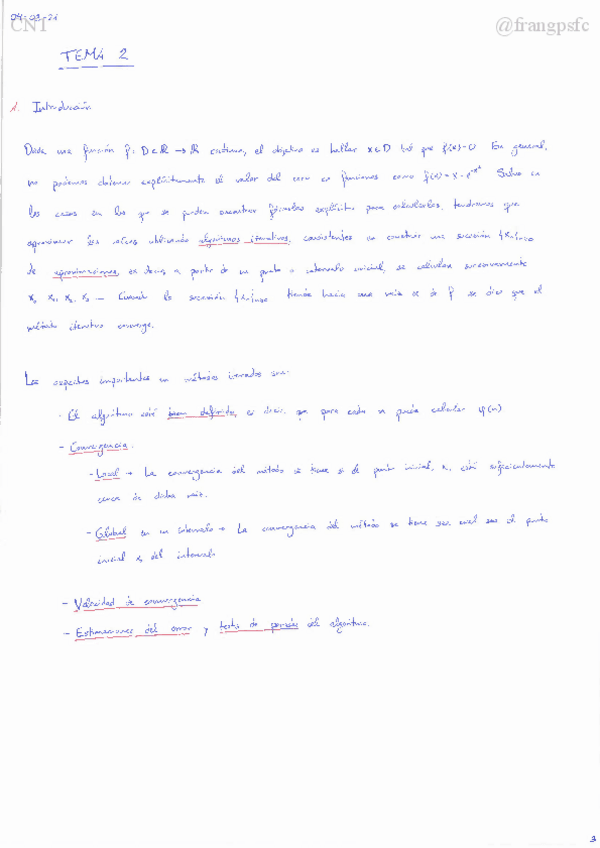 04-03-21
CNT @frangpsfc
TEMA 2
1. Introducción
Dada una función f: D⊂ℝ → ℝ continua, el objetivo es hallar x∈D tal que f(x)=0 En general,
no podemos obtener explícitamente el valor del cero en funciones como f(x)=x-e^{-x²} Salvo en
los casos en los que se pueden encontrar fórmulas explícitas para calcularlos, tendremos que
aproximar las raíces utilizando algoritmos iterativos, consistentes en construir una sucesión {xₙ}ₙ≥₀
de aproximaciones, es decir, a partir de un punto o intervalo inicial, se calculan sucesivamente
x₀, x₁, x₂, x₃ ... Cuando la sucesión {xₙ}ₙ≥₀ tiende hacia una raíz de f se dice que el
método iterativo converge.
Los aspectos importantes en métodos iterados son:
- El algoritmo esté bien definido, es decir, que para cada n pueda calcular φ(n)
- Convergencia.
- Local → La convergencia del método se tiene si el punto inicial, x₀ está suficientemente
cerca de dicha raíz.
- Global en un intervalo → La convergencia del método se tiene sea cual sea el punto
inicial x₀ del intervalo
- Velocidad de convergencia
- Estimaciones del error y tests de parada del algoritmo.
3